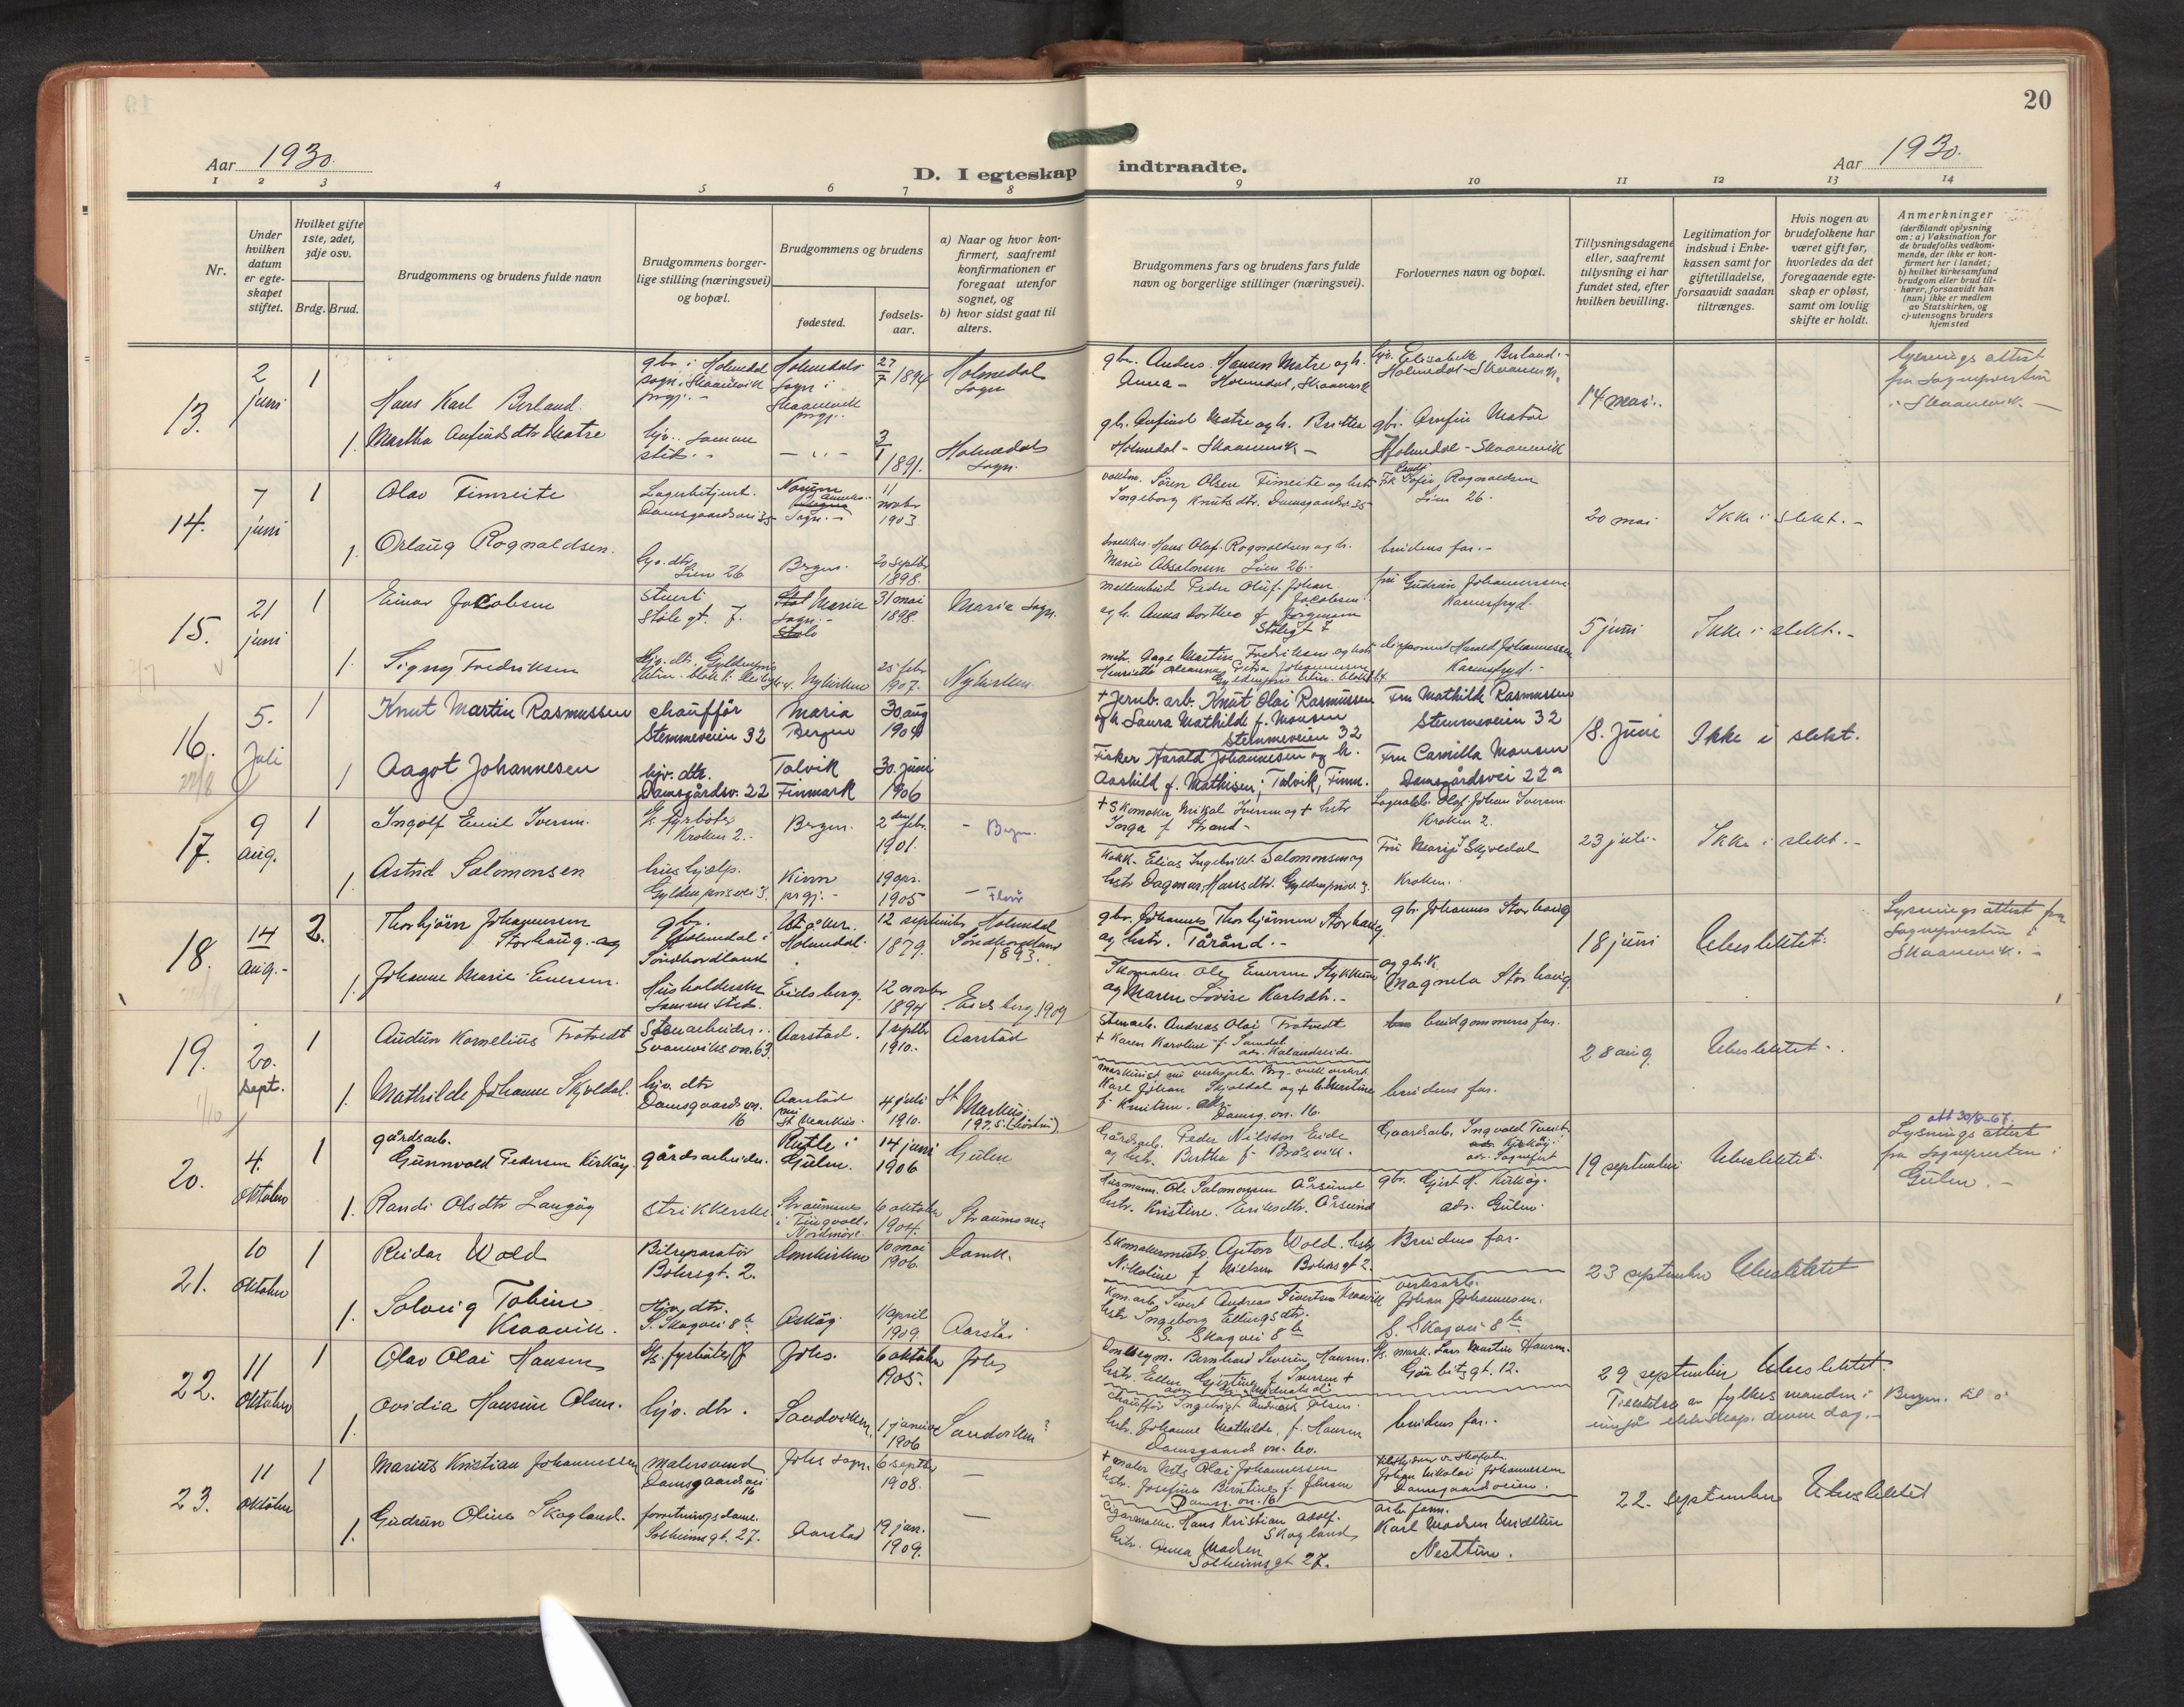 20
Aar 1930.
D. I egteskap indtraadte.
Aar 1930.
1 2 3 4 5 6 7 8 9 10 11 12 13 14
Nr.
Under hvilken datum er egteskapet stiftet.
Hvilket gifte 1ste, 2det, 3dje osv.
Brdg. Brud.
Brudgommens og brudens fulde navn
Brudgommens borgerlige stilling (næringsvei) og bopæl.
Brudgommens og brudens
fødested.
fødselsaar.
a) Naar og hvor konfirmert, saafremt konfirmationen er foregaat utenfor sognet, og
b) hvor sidst gaat til alters.
Brudgommens fars og brudens fars fulde navn og borgerlige stillinger (næringsvei).
Forlovernes navn og bopæl.
Tillysningsdagene eller, saafremt tillysning ei har fundet sted, efter hvilken bevilling.
Legitimation for indskud i Enkekassen samt for giftetilladelse, forsaavidt saadan tiltrænges.
Hvis nogen av brudefolkene har været gift før, hvorledes da det foregaaende egteskap er opløst, samt om lovlig skifte er holdt.
Anmerkninger (deriblandt oplysning om: a) Vaksination for de brudefolks vedkommende, der ikke er konfirmert her i landet; b) hvilket kirkesamfund brudgom eller brud tilhører, forsaavidt han (hun) ikke er medlem av Statskirken, og c) utensogns bruders hjemsted
13. 2 juni 1 Hans Karl Berland. gbr. i Holmedal sogn, Skaanevik prgj. Holmedals sogn i Skaanevik prgj. 27/7 1894 Holmedal sogn
gbr. Anders Hansen Matre og h. Anna - Holmedal, Skaanevik
Elisabeth Berland. Holmedal - Skaanevik.
14 mai.
lysnings attest fra sogneprestin i Skaanevik.
1. Martha Anfindsdtr Matre hjv. samme sted. - " - 3/1 1891. Holmedals sogn.
gbr. Anfind Matre og h. Britha Holmedal - Skaanevik -
gbr. Arnfin Matre Holmedal - Skaanevik
14. 7 juni 1 Olav Fimreite Lagerbetjent. Damsgaardsvei 35 Sogn. 11 novbr 1903
Sören Olsen Fimreite og hstr Ingeborg Knutsdtr. Damsgaardsv. 35
Sofie Rognaldsen Lien 26.
20 mai
Ikke i slekt. -
1. Orlaug Rognaldsen. hjv. dtr. Lien 26 Bergen. 20 septbr 1898.
Hans Olaf Rognaldsen og h. Marie Absalonsen Lien 26.
brudens far. -
15. 21 juni 1 Einar Jacobsen stuert Stöle gt. 7. Maria sogn. 31 mai 1898. Maria sogn.
Peder Oluf Johan Jacobsen og h. Anna Dorthea f Jörgensen Stölegt 7
fru Gudrun Johannessen
5 juni
Ikke i slekt. -
1. Signy Fredriksen hjv. dtr. Nykirken 25 febr 1907. Nykirken
Aage Martin Fredriksen og hstr
disponent Harald Johannessen
16. 5. Juli 1 Knut Martin Rasmussen chaufför Stemmeveien 32 Maria Bergen 30. aug 1904
+ Jernb. arb. Knut Olai Rasmussen og h. Laura Mathilde f. Monsen Stemmeveien 32
Fru Mathilde Rasmussen Stemmeveien 32
18. Juni
Ikke i slekt.
1 Aagot Johannesen hjv. dtr. Damsgårdsv. 22 Talvik Finmark 30. juni 1906
Fisker Harald Johannesen og h. Aashild f. Mathisen; Talvik, Finm.
Fru Camilla Monsen Damsgårdsvei 22a
17. 9 aug. 1 Ingolf Emil Iversen. fyrböter Kroken 2. Bergen. 2 den febr. 1901. - Bergen.
+ Skomaker Mikal Iversen og + hstr Inga f Strand -
Olaf Johan Iversen. Kroken 2.
23 juli -
Ikke i slekt. -
1. Astrid Salomonsen hushjelp. Gyldenprisvei 3. Kinn prgj. - 19 apr. 1905 - Florö
Kokk - Elias Ingebrikt Salomonsen og hstr Dagmar Hansdtr. Gyldenprisv. 3.
Fru Marie Skjoldal Kroken.
18. 14 aug. - 2. Thorbjörn Johannessen Storhaug. gbr. Holmedal i Söndhordland Holmedal. 12 september 1879. Holmedal Söndhordland 1893.
gbr. Johannes Thorbjörnsen Storhaug og hstr. Tårånd. -
gbr. Johannes Storhaug
18 juni
Ubeslektet.
Lysnings attest fra sogneprestin i Skaanevik. -
1. Johanne Marie Enersen. Husholderske samme sted. Eidsberg. 12 novbr 1894 Eidsberg 1909
Ole Enersen og Maren Lovise Karlsdtr. -
og gbr.k. Magnela Storhaug
19. 20. sept. 1 Audun Kornelius Trotvedt Stenarbeider. Svaneviksvn. 63. Aarstad. 1 septbr 1910. Aarstad
Stenarb. Andreas Olai Trotvedt + Karen Karoline f.
brudgommens far.
28 aug
Ubeslektet. -
1. Mathilde Johanne Skjoldal. hjv. dtr Damsgaardsvn. 16 Aarstad St Markus. 4 juli 1910. St Markus. 1925.
Karl Johan Skjoldal Damsg. vn. 16.
brudens far.
20. 4. oktober 1 gårdsarb. Gunnvald Pedersen Kirköy gårdsarbeider. Gulen. 14 juni 1906 Gulen
Gårdsarb. Peder Nilsson Eide og hstr. Bertha f.
Gaardsarb. Ingvald
19 september
Ubeslektet
att 30/8-67.
Lysnings attest fra sognepresten i Gulen. -
1. Randi Olsdtr Langöy strikkerske Straumsnes i Tingvoll, Nordmöre. 6 oktober 1904. Straumsnes
Ole Salomonsen Årsund hstr. Kristine Eriksdtr. Årsund
gbr. Kirköy. adr. Gulen.
21. 10 oktober 1 Reidar Wold Bilreparatör Bohrsgt. 2. Domkirken 10 mai 1906. Domk.
Skomakermestr. Wold. hstr Nikoline f Nielsen Bohrsgt 2.
Brudens far.
23 september
Ubeslektet
1. Solveig Tobine Kraavik. Hjv. dtr. S. Skogvei 8b Asköy 11 april 1909. Aarstad
Sivert Andreas Sivertsen Kraavik hstr Ingeborg Ellingsdtr. S. Skogvei 8b
verksarb. Johan Johannesen. S. Skogvei 8b
22. 11 oktober 1 Olav Olai Hansen fyrböter Johs. 6 oktober 1905. Johs
Bernhard Severin Hansen. hstr. Ellen f Iversen +
Lars Martin Hansen. Görbitzgt. 12.
29 september
Ubeslektet.
Tillatelse av fylkesmanden i Bergen til å inngå ekteskap denne dag. -
1. Ovidia Hansine Olsen. hjv. dtr. Sandviken, 1 januar 1906 Sandviken?
Chaufför Ingebrigt Andreas Olsen. hstr. Johanne Mathilde, f. Hansen Damsgaards vn. 60.
brudens far. -
23. 11 oktober 1 Marius Kristian Johannessen malersvend Damsgaardsvei 16 Johs sogn. 6 septbr 1908. -
+ maler Nils Olai Johannessen hstr. Josefine Berntine f. Jensen Damsg. vn. 16
Johan Nikolai Johannessen Damsgaardsveien.
22. september
Ubeslektet
1. Gudrun Oline Skogland. forretningsdame. Solheimsgt. 27. Aarstad 19 jan. 1909. -
Cigarmaker Hans Kristian Adolf. Skogland hstr. Anna Madsen Solheimsgt 27.
Karl Madsen Nesttun.